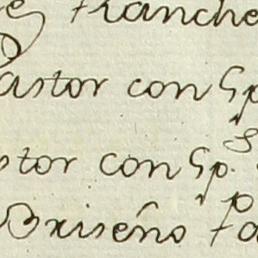 Ranche
Pastor con Gp
stor con Gp.
Briseño